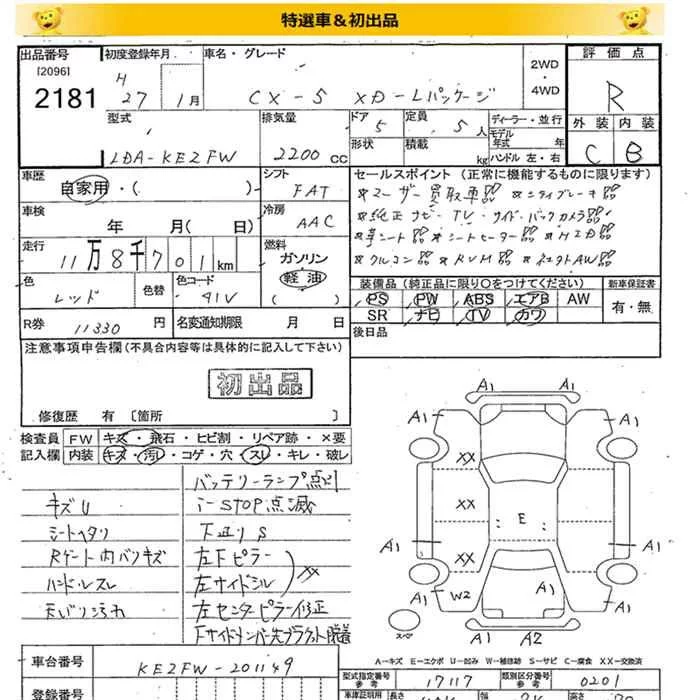 特選車＆初出品
出品番号 初度登録年月 車名・グレード 2WD・4WD 評価点
[2096]
2181 H 27年 1月 CX-5 XD-Lパッケージ R
型式 排気量 ドア 定員 ディーラー・並行 外装 内装
LDA-KE2FW 2200cc 5 5人 モデル年式 年 C B
形状 積載 kg ハンドル 左・右
車歴 シフト セールスポイント (正常に機能するものに限ります)
自家用・( ) FAT
車検 冷房 純正ナビ・TV・サイド・バックカメラ
年 月(日) AAC シートヒーター HID
走行 燃料 クルコン RVM
11万8千701km ガソリン
軽油
( )
色 色替 色コード 装備品 (純正品に限り○をつけてください) 新車保証書
レッド 41V PS PW ABS エアB AW 有・無
R券 11330円 名変通知期限 月 日 SR ナビ TV カワ
注意事項申告欄(不具合内容等は具体的に記入して下さい) 後日品
初出品
修復歴 有 〔箇所 〕
検査員 FW キズ・飛石・ヒビ割・リペア跡・×要
記入欄 内装 キズ・汚・コゲ・穴・スレ・キレ・破レ
バッテリーランプ点灯
キズU i-STOP点滅
シートヘタリ 下廻りS
Rゲート内バリキズ 左Fピラー
ハンドルスレ 左サイドシル XX
天バリ汚れ 左センターピラー修正
A1 A1
A1 A1
XX
XX E
XX
A1 A1
W2 A1
スペア A1 A2
A-キズ E-エクボ U-凹み W-補修跡 S-サビ C-腐食 XX-交換済
車台番号 KE2FW-201149 型式指定番号 参考 17117 類別区分番号 参考 0201
登録番号 車庫証明用 長さ 幅 高さ